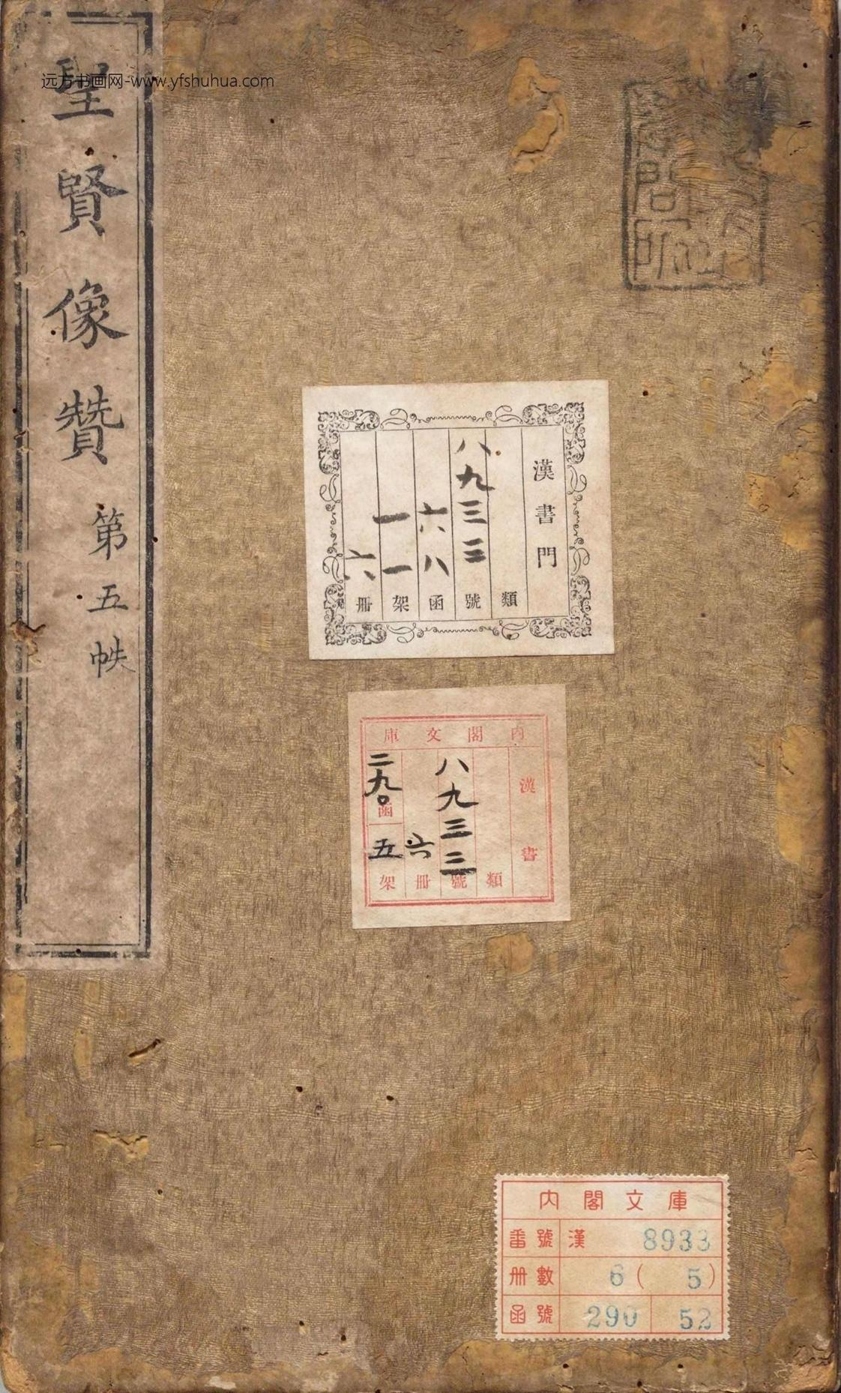 远方书画网-www.yfshuhua.com
聖賢像贊 第五帙
漢書門
類
八九三三號
六八函
一一架
六冊
內閣文庫
漢書
類
八九三三號
六冊
二九〇函
五架
內閣文庫
番號 漢 8933
冊數 6(5)
函號 290 52